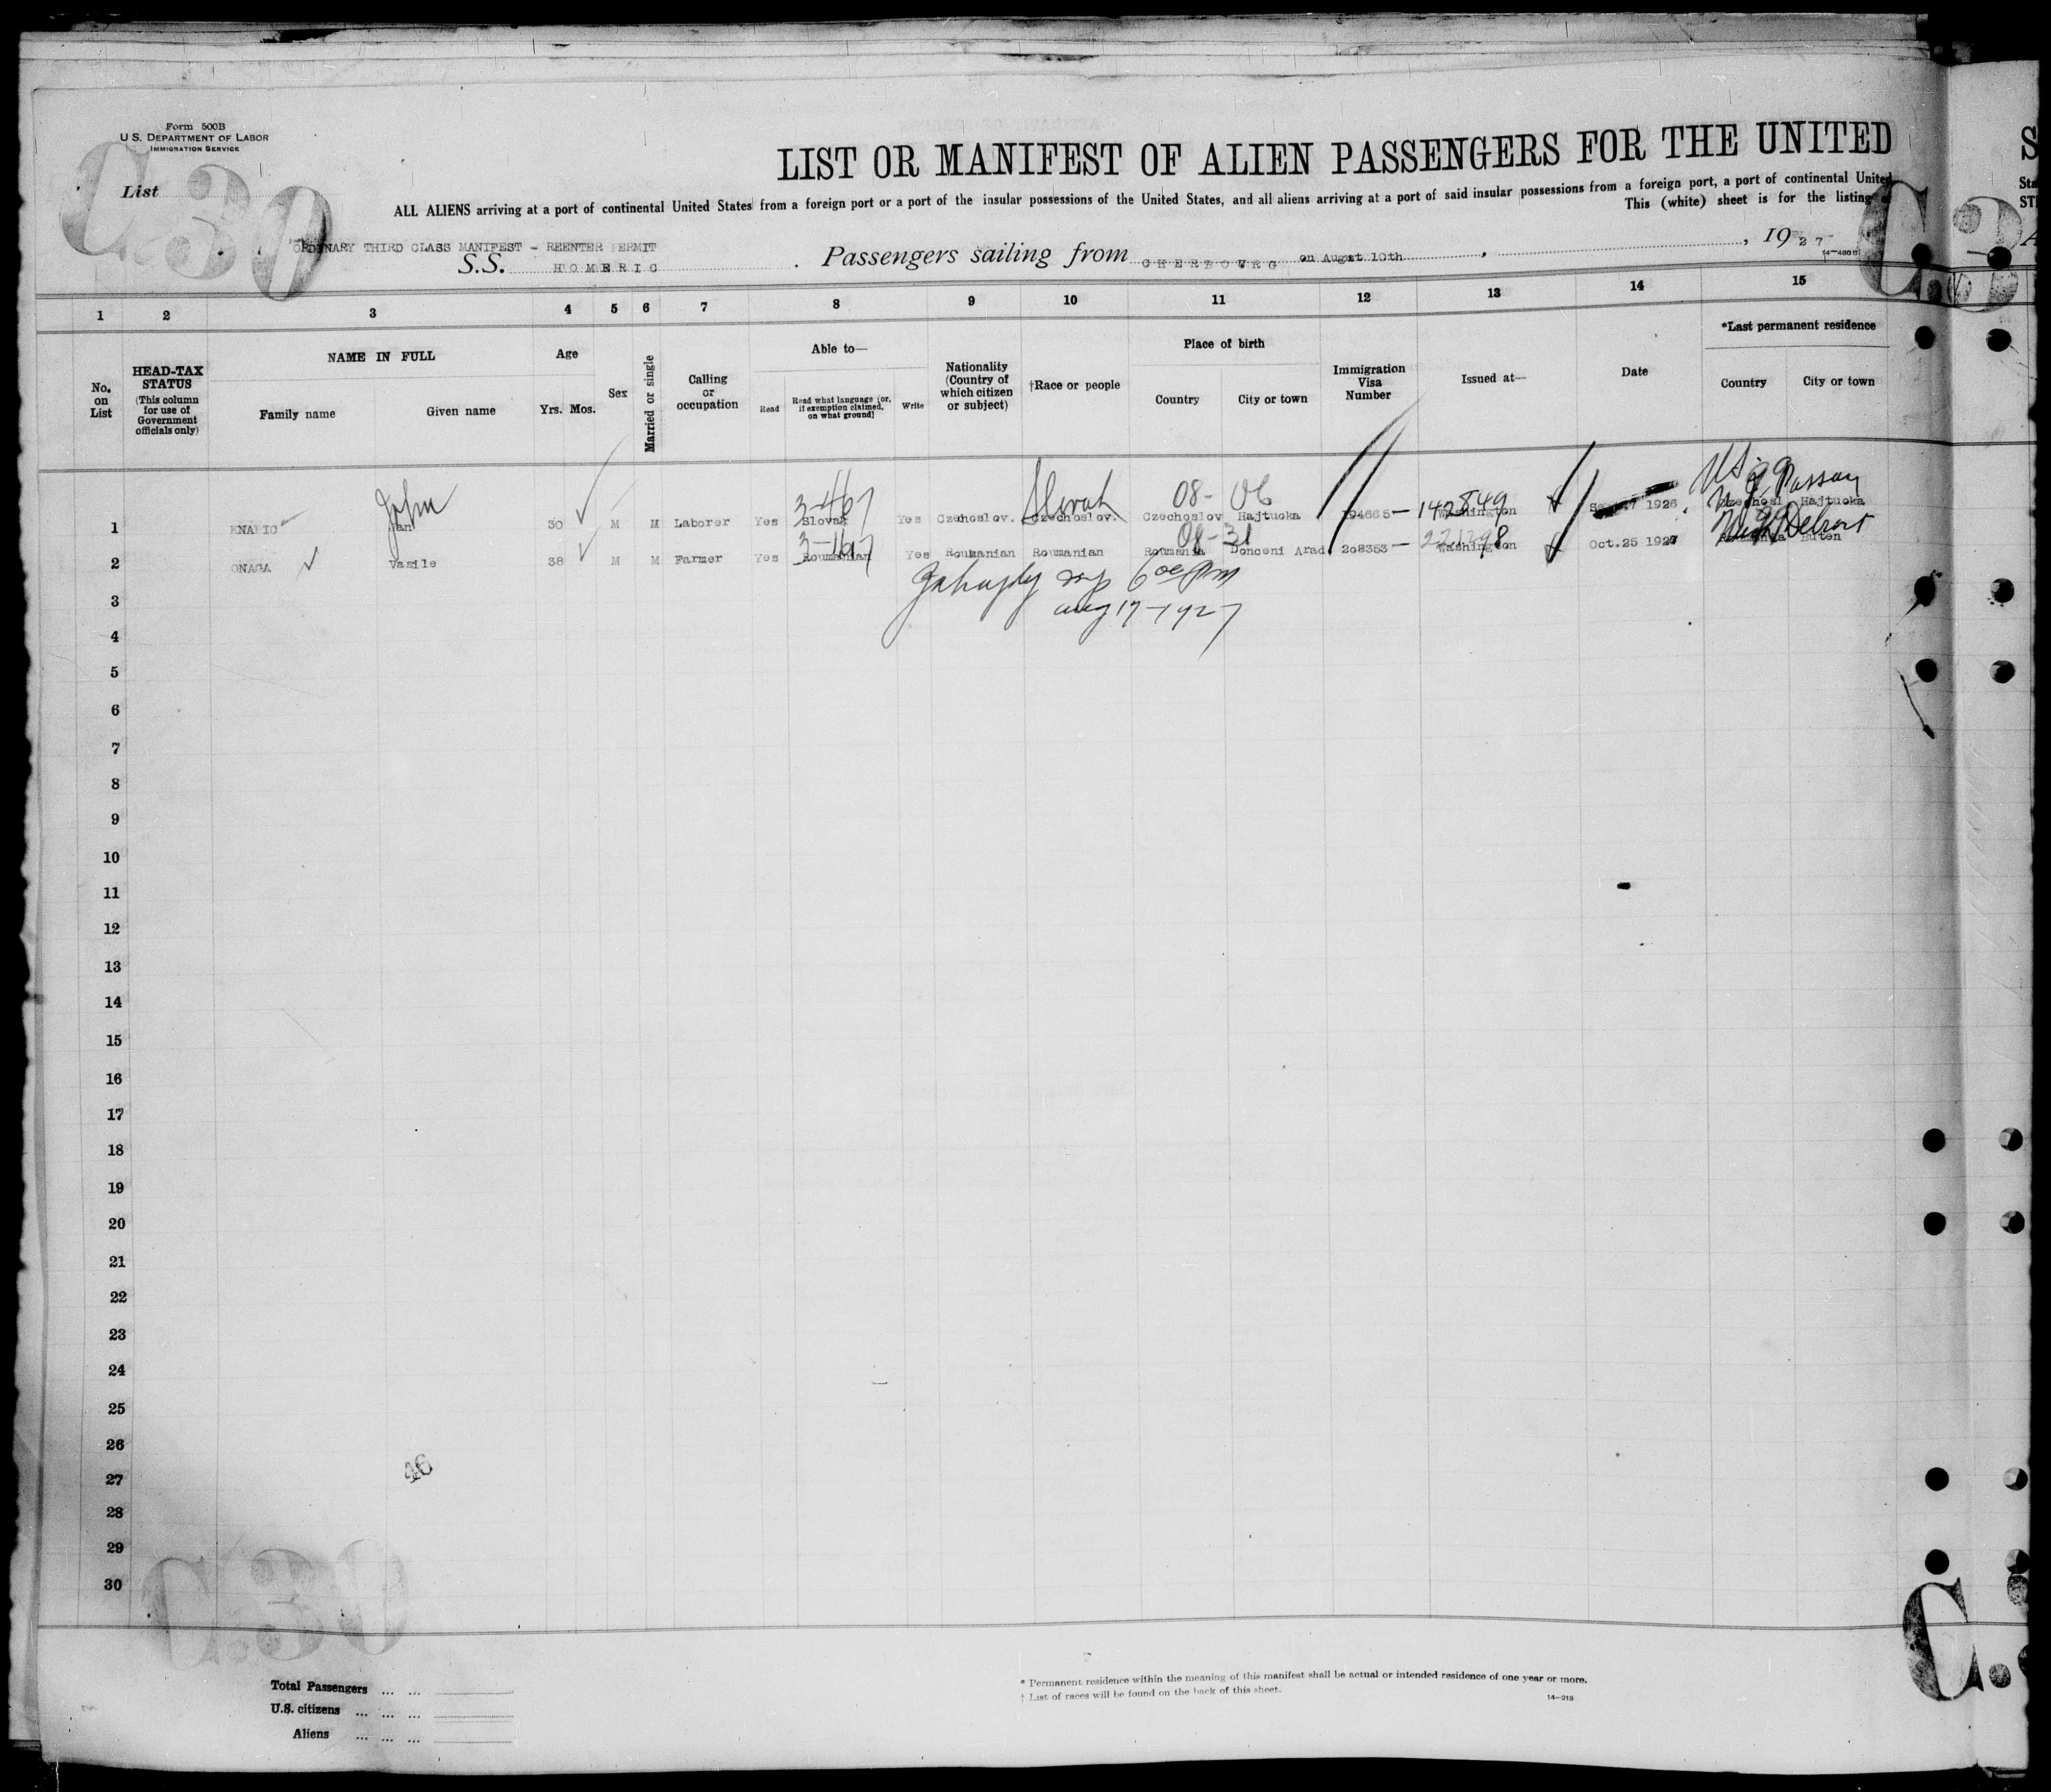 Form 500B
U S. DEPARTMENT OF LABOR
IMMIGRATION SERVICE
List
C. 30
LIST OR MANIFEST OF ALIEN PASSENGERS FOR THE UNITED
ALL ALIENS arriving at a port of continental United States from a foreign port or a port of the insular possessions of the United States, and all aliens arriving at a port of said insular possessions from a foreign port, a port of continental United
This (white) sheet is for the listing
ORDINARY THIRD CLASS MANIFEST - REENTER PERMIT
S.S. HOMERIC. Passengers sailing from CHERBOURG on August 10th, 1927
1 2 3 4 5 6 7 8 9 10 11 12 13 14 15
No. on List
HEAD-TAX STATUS (This column for use of Government officials only)
NAME IN FULL
Family name Given name
Age
Yrs. Mos.
Sex
Married or single
Calling or occupation
Able to—
Read Read what language (or, if exemption claimed, on what ground) Write
Nationality (Country of which citizen or subject)
†Race or people
Place of birth
Country City or town
Immigration Visa Number
Issued at—
Date
*Last permanent residence
Country City or town
John 3-467 Slovak 08- 06 142849
1 Jan 30 M M Laborer Yes Slovak Yes Czechoslov. Czechoslov. Czechoslov Hajtuoka Washington 1926 Czechosl Hajtuoka
08-31 Mich Detroit
2 ONAGA Vasile 38 M M Farmer Yes Roumanian Yes Roumanian Roumanian Roumania Donceni Arad 208353 — Washington Oct.25 1927 Buten
6 00 pm
3
Aug 17-1927
4
5
6
7
8
9
10
11
12
13
14
15
16
17
18
19
20
21
22
23
24
25
26
46
27
28
29
30
Total Passengers
U.S. citizens
Aliens
* Permanent residence within the meaning of this manifest shall be actual or intended residence of one year or more.
† List of races will be found on the back of this sheet.
14—218